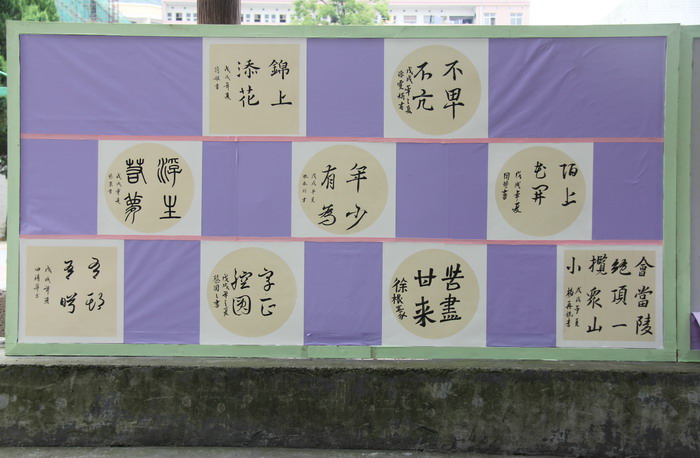 錦上
添花
戊戌年夏
不卑
不亢
戊戌年之夏
浮生
若夢
戊戌年夏
年少
有為
戊戌年夏
陌上
花開
戊戌年夏
戊戌年夏
字正
腔圓
戊戌年之夏
苦盡
甘来
會當陵
絕頂一
攬眾山
小
戊戌年夏